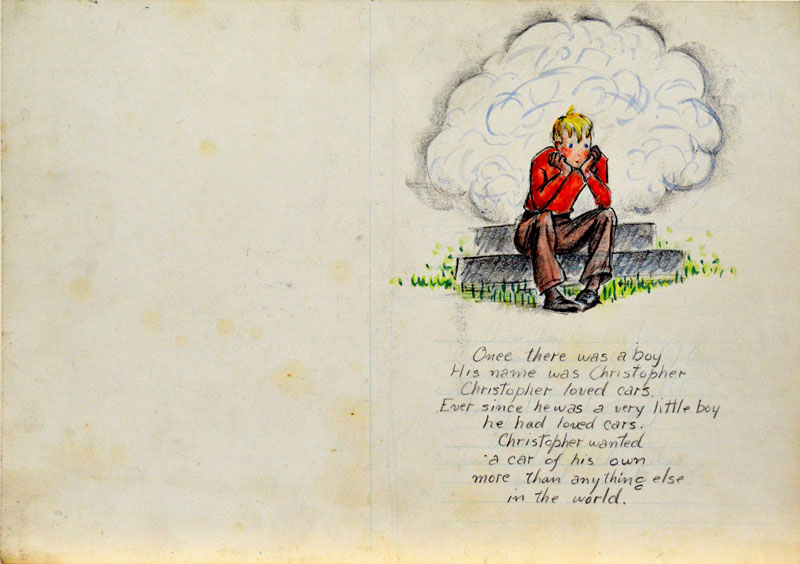 Once there was a boy
His name was Christopher
Christopher loved cars.
Ever since he was a very little boy
he had loved cars.
Christopher wanted
a car of his own
more than anything else
in the world.